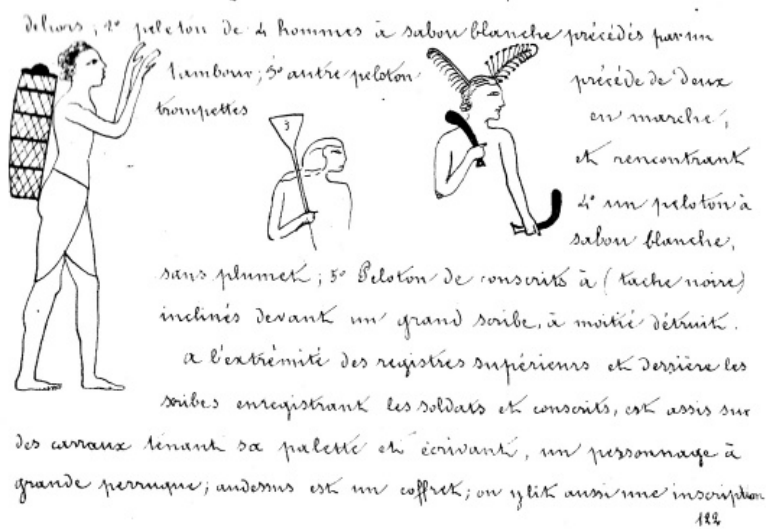 dehors; 2° peloton de 4 hommes à sabou blanche précédés par un
tambour; 3° autre peloton précédé de deux
trompettes en marche,
3
et rencontrant
4° un peloton à
sabou blanche,
sans plumet; 5° Peloton de conscrits à (tache noire)
inclinés devant un grand scribe, à moitié détruit.
a l'extrémité des registres supérieurs et derrière les
scribes enregistrant les soldats et conscrits, est assis sur
des carraux tenant sa palette et écrivant, un personnage à
grande perruque; audessus est un coffret; on y lit aussi une inscription
122